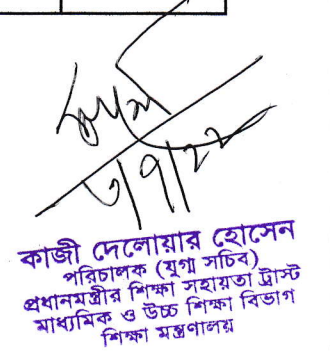 ৩/৭/২২
কাজী দেলোয়ার হোসেন
পরিচালক (যুগ্ম সচিব)
প্রধানমন্ত্রীর শিক্ষা সহায়তা ট্রাস্ট
মাধ্যমিক ও উচ্চ শিক্ষা বিভাগ
শিক্ষা মন্ত্রণালয়